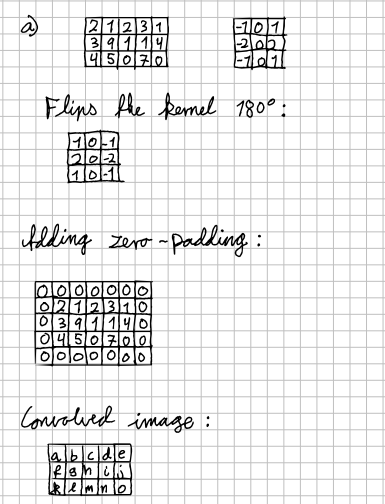 a)
2 1 2 3 1 -1 0 1
3 9 1 1 4 -2 0 2
4 5 0 7 0 -1 0 1
Flips the kernel 180°:
1 0 -1
2 0 -2
1 0 -1
Adding zero-padding:
0 0 0 0 0 0 0
0 2 1 2 3 1 0
0 3 9 1 1 4 0
0 4 5 0 7 0 0
0 0 0 0 0 0 0
Convolved image:
a b c d e
f g h i j
k l m n o